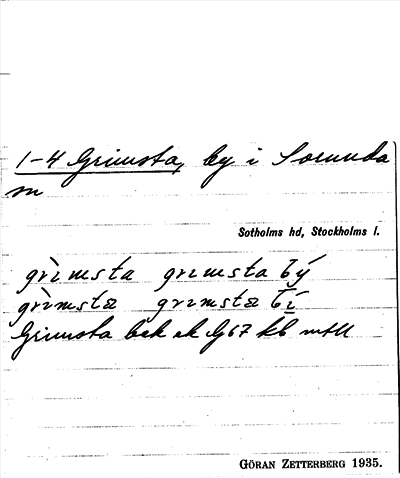 1-4 Grimsta, by i Sorunda
sn
Sotholms hd, Stockholms l.
grìmsta grımsta bý
grìmstæ grımstæ bí
Grimsta bek ek G67 kb mtll
GÖRAN ZETTERBERG 1935.